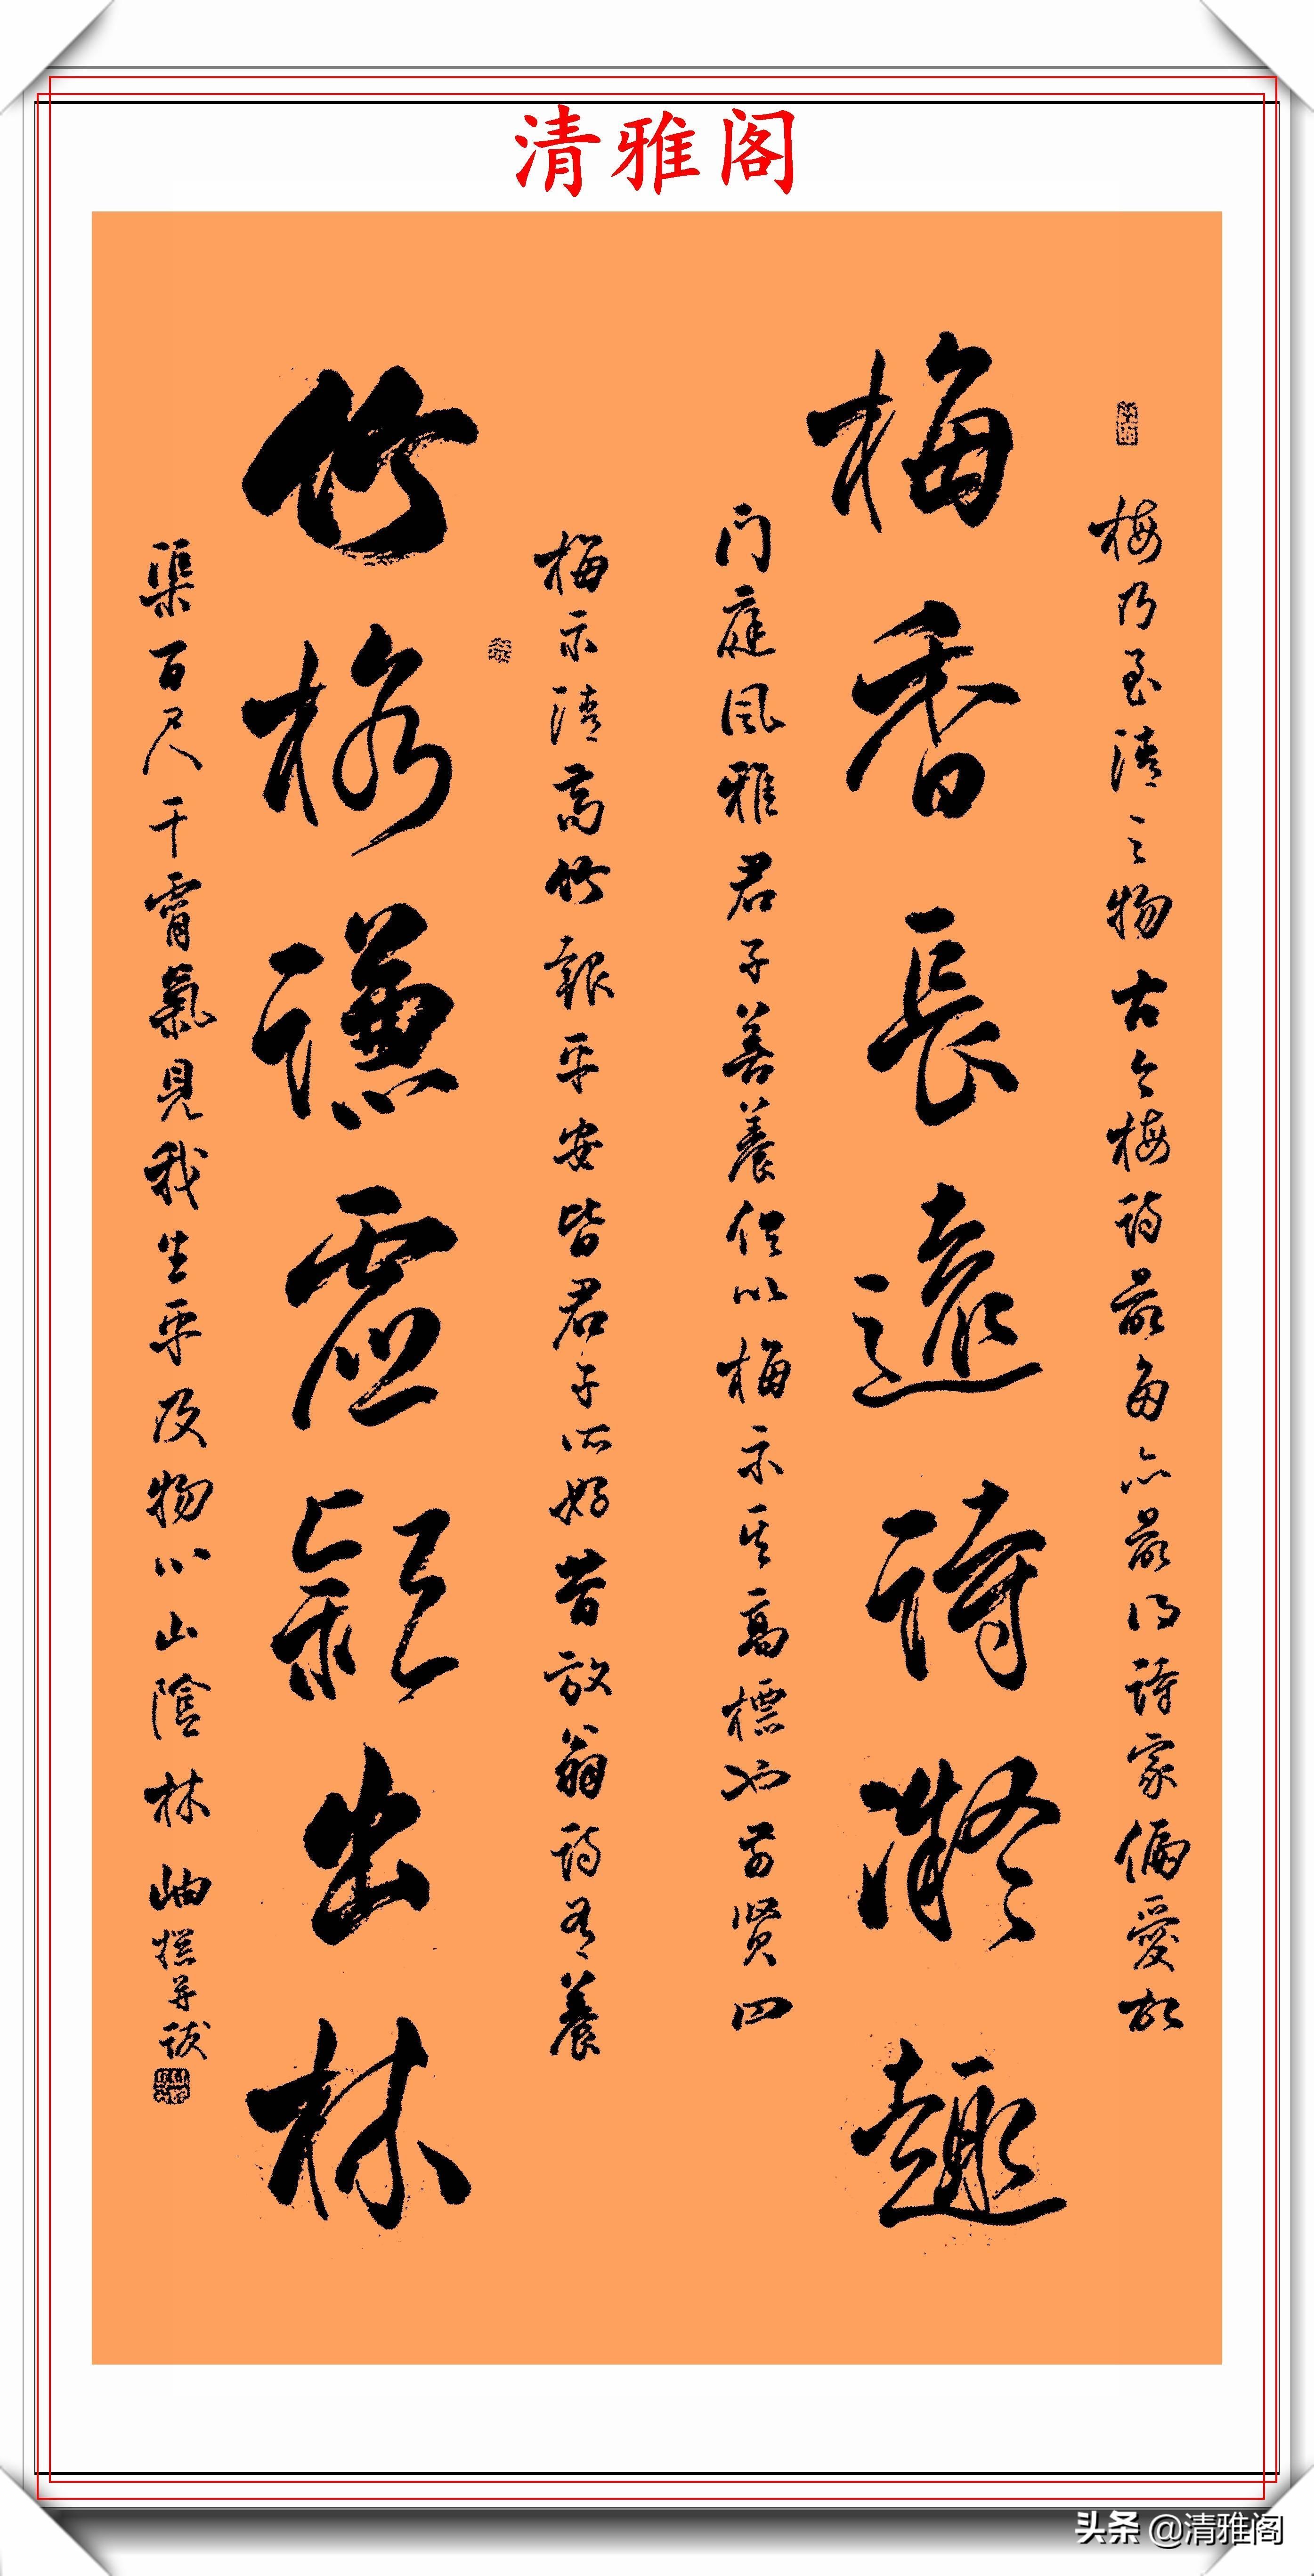 清雅阁
梅乃至清之物古今梅诗最多亦最得詩家偏愛故
梅香長遠詩凝趣
门庭风雅君子善養但以梅示其高標也前贤四
梅示清高竹報平安皆君子所好昔放翁诗有養
竹格謙虚穎出林
渠百尺干霄氣見我生平及物心山陰林岫撰并跋
头条 @清雅阁